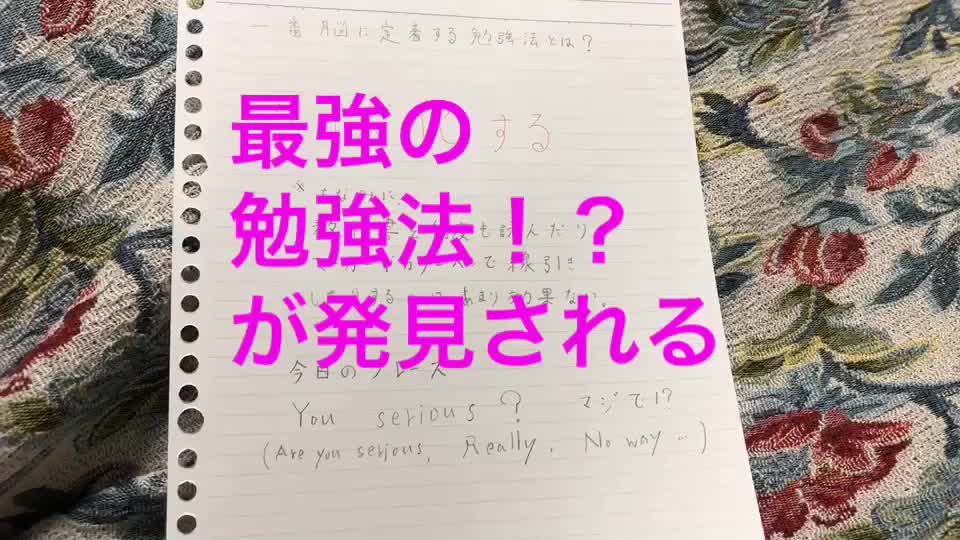 一番脳に定着する勉強法とは?
する
最強の
勉強法!?
が発見される
ちなみに
も読んだり
で線引き
あまり効果ない。
今日のフレーズ
You serious? マジで!?
(Are you serious, Really, No way …)